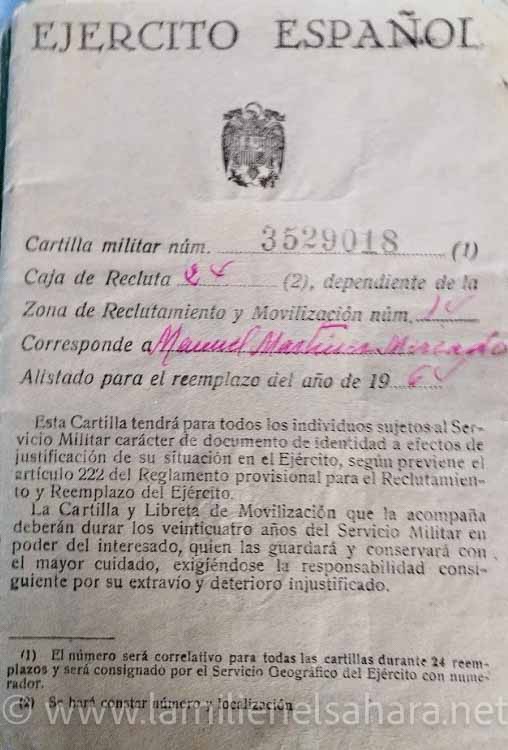 EJERCITO ESPAÑOL
Cartilla militar núm. 3529018 (1)
Caja de Recluta 24 (2), dependiente de la
Zona de Reclutamiento y Movilización núm. 14
Corresponde a Manuel Martínez
Alistado para el reemplazo del año de 1964
Esta Cartilla tendrá para todos los individuos sujetos al Ser-
vicio Militar carácter de documento de identidad a efectos de
justificación de su situación en el Ejército, según previene el
artículo 222 del Reglamento provisional para el Reclutamien-
to y Reemplazo del Ejército.
La Cartilla y Libreta de Movilización que la acompaña
deberán durar los veinticuatro años del Servicio Militar en
poder del interesado, quien las guardará y conservará con
el mayor cuidado, exigiéndose la responsabilidad consi-
guiente por su extravío y deterioro injustificado.
(1) El número será correlativo para todas las cartillas durante 24 reem-
plazos y será consignado por el Servicio Geográfico del Ejército con nume-
rador.
(2) Se hará constar número y localización
© www.lamilienelsahara.net